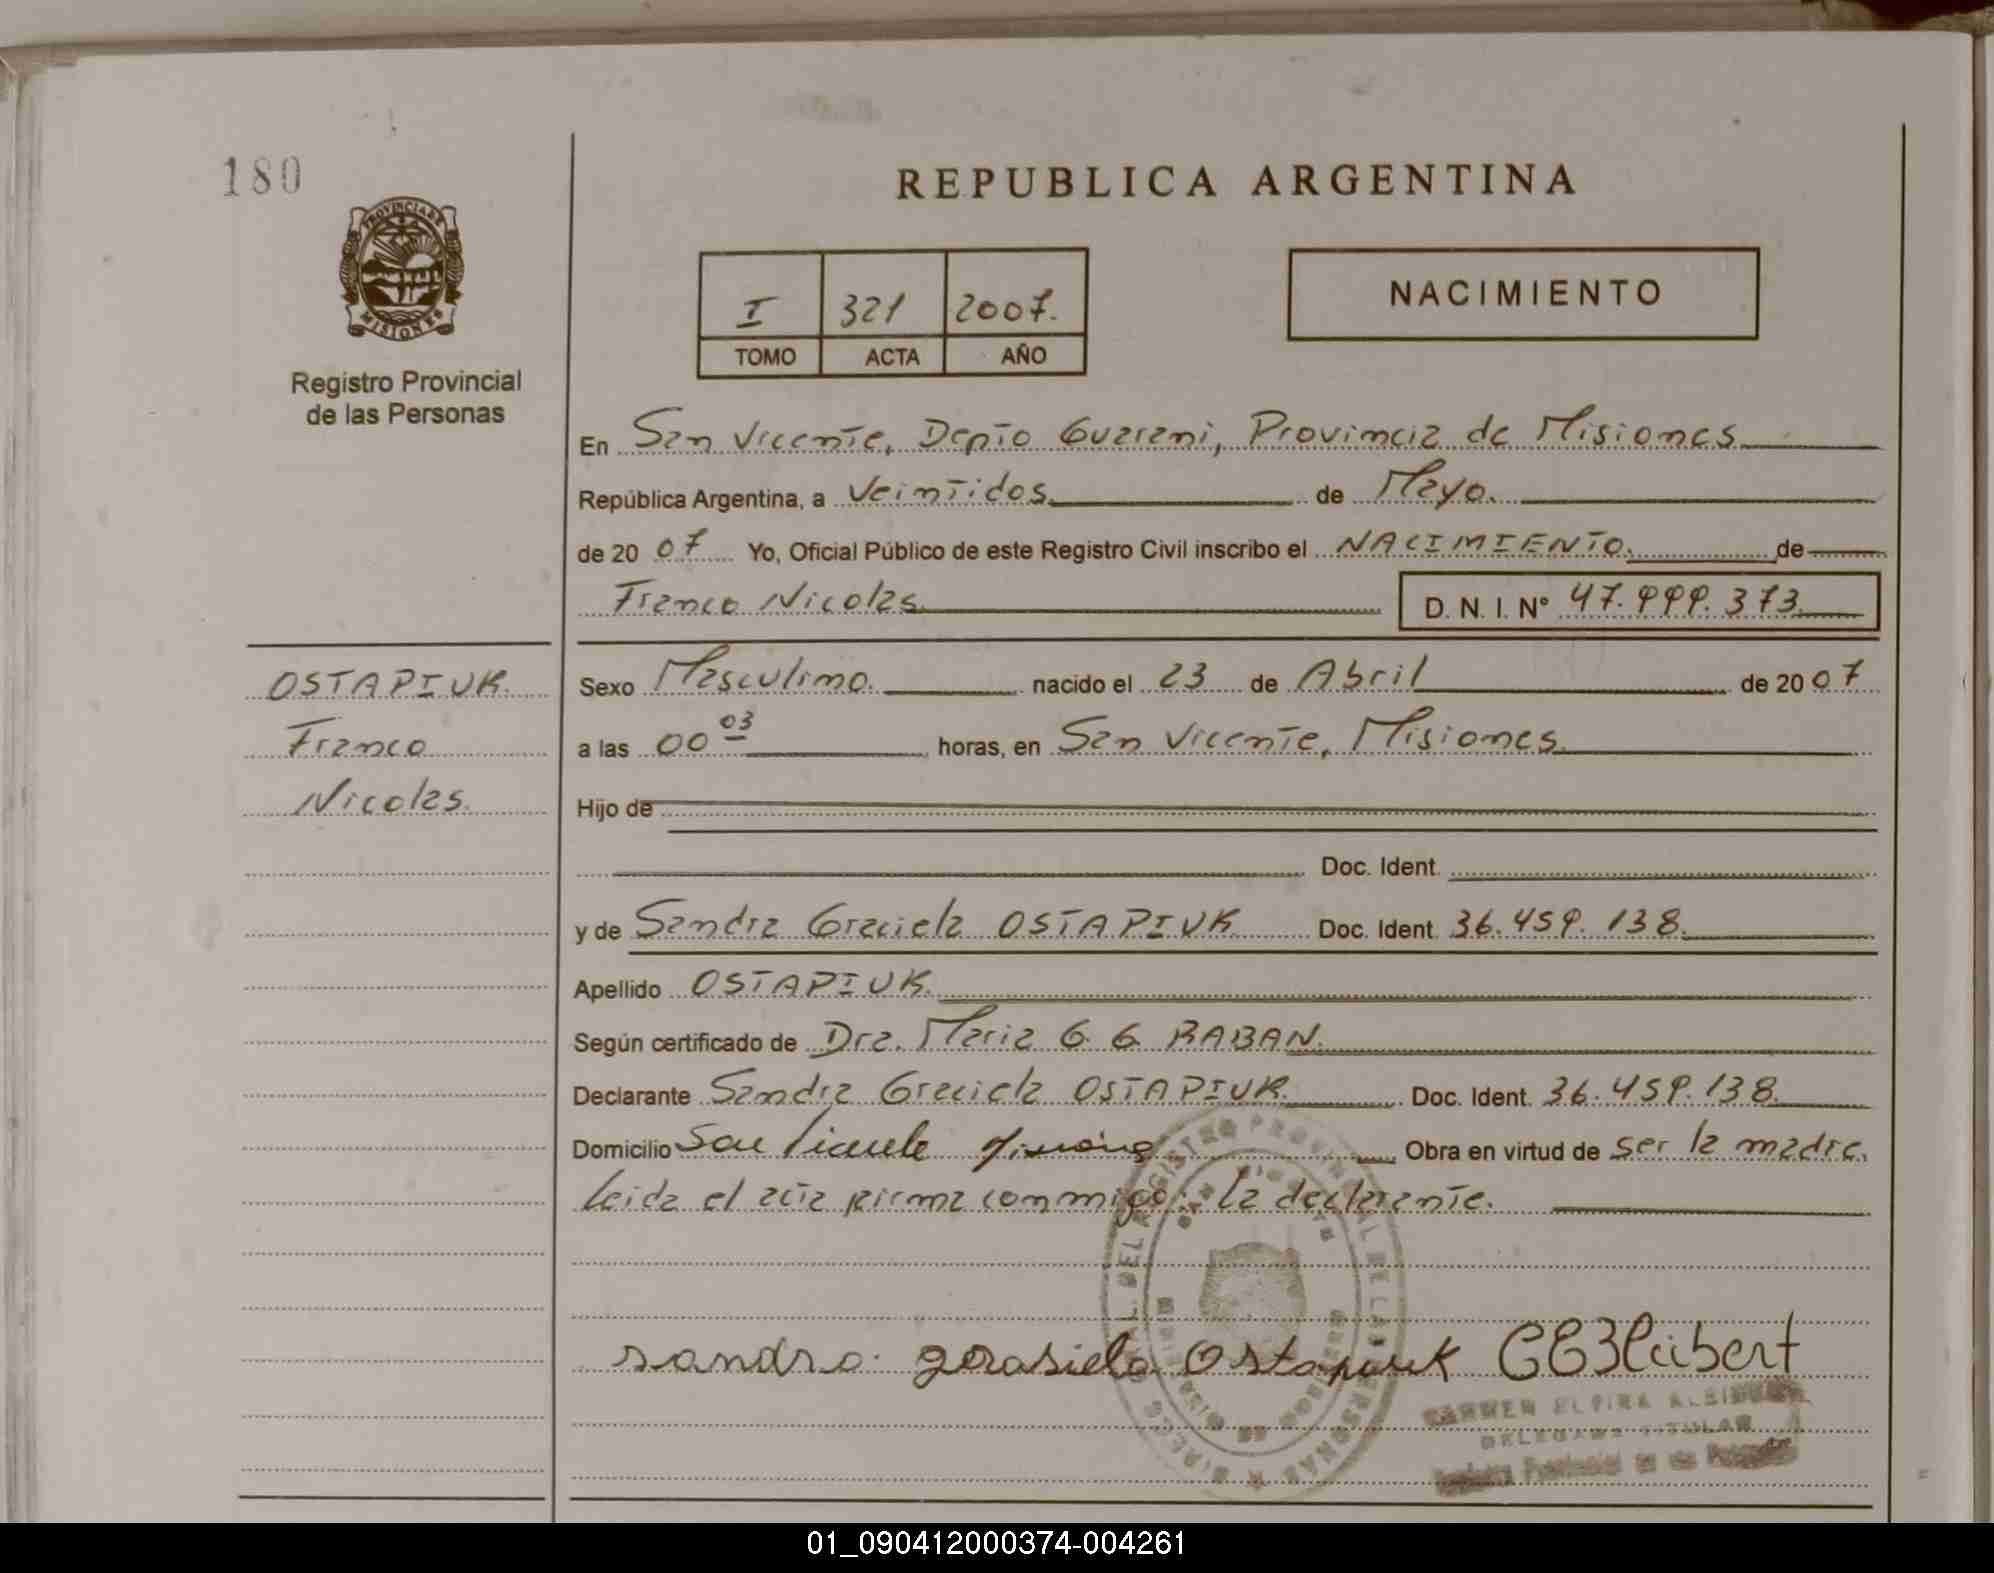 180
REPUBLICA ARGENTINA
PROVINCIA DE
MISIONES
Registro Provincial
de las Personas
I 321 2007.
TOMO ACTA AÑO
NACIMIENTO
En San Vicente, Depto Guarani, Provincia de Misiones
República Argentina, a Veintidos. de Mayo.
de 20 07 Yo, Oficial Público de este Registro Civil inscribo el NACIMIENTO. de
Franco Nicolas. D. N. I. N° 47.999.373
OSTAPIUK.
Franco
Nicolas.
Sexo Masculino. nacido el 23 de Abril de 20 07
a las 00 03 horas, en San Vicente, Misiones.
Hijo de
Doc. Ident.
y de Sandra Graciela OSTAPIUK Doc. Ident. 36.459.138.
Apellido OSTAPIUK.
Según certificado de Dra. Maria G. G. RABAN.
Declarante Sandra Graciela OSTAPIUK. Doc. Ident. 36.459.138.
Domicilio San Vicente Misiones Obra en virtud de ser la madre.
Leida el acta firma conmigo: la declarante.
sandra grasiela Ostapiuk
CARMEN ELVIRA
DELEGADA TITULAR
Registro Provincial de las Personas
01_090412000374-004261